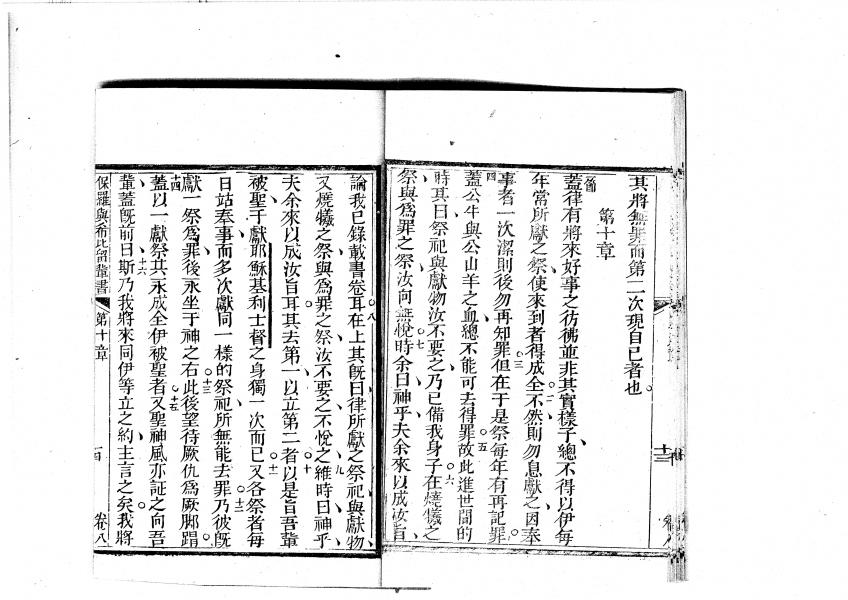 其將無罪而第二次現自己者也
第十章
蓋律有將來好事之彷彿並非其實樣子總不得以伊每
年常所獻之祭使來到者得成全不然則勿息獻之因奉
二
事者一次潔則後勿再知罪但在于是祭每年有再記罪
三
四
蓋公牛與公山羊之血總不能可去得罪故此進世間的
五
時其曰祭祀與獻物汝不要之乃已備我身子在燒犧之
六
祭與爲罪之祭汝向無悅時余曰神乎夫余來以成汝旨
七
論我已錄載書卷耳在上其既曰律所獻之祭祀與獻物
八
又燒犧之祭與爲罪之祭汝不要之不悅之維時曰神乎
九
夫余來以成汝旨耳其去第一以立第二者以是旨吾輩
十
被聖于獻耶穌基利士督之身獨一次而已又各祭者每
十一
日站奉事而多次獻同一樣的祭祀所無能去罪乃彼既
十二
獻一祭爲罪後永坐于神之右此後望待厥仇爲厥腳踻
十三
十四
蓋以一獻祭其永成全伊被聖者又聖神風亦証之向吾
十五
輩蓋既前曰斯乃我將來同伊等立之約主言之矣我將
十六
保羅與希比留輩書
第十章
一百
卷八